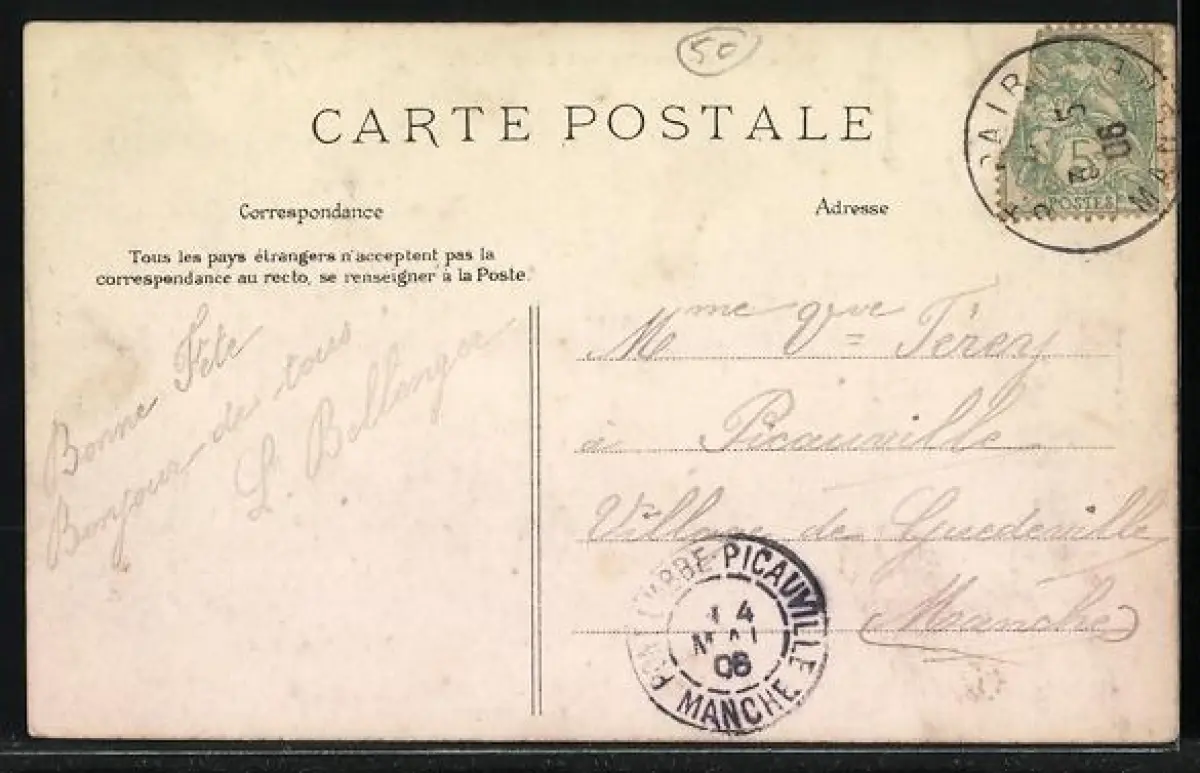 50
CARTE POSTALE
Correspondance
Adresse
Tous les pays étrangers n'acceptent pas la
correspondance au recto, se renseigner à la Poste.
5
POSTES
MANCHE
Bonne Fête
Bonjour de tous
L. Bellanger
Mme Vve Férey
à Picauville
Village de Guedeville
(Manche)
L'ABBÉ-PICAUVILLE
14
MAI
06
MANCHE